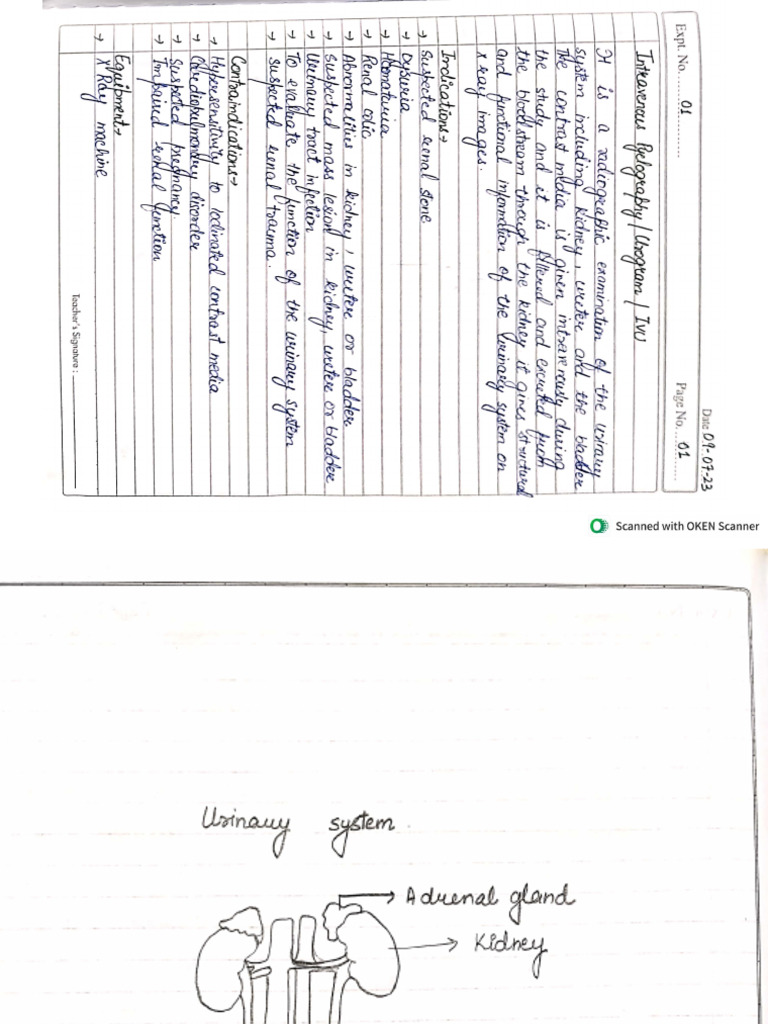 Date 09-07-23
Expt. No. 01
Page No. 01
Intravenous Pyelography / Urogram / IVU
It is a radiographic examination of the urinary
system including kidney, ureter and the bladder
The contrast media is given intravenously during
the study and it is filtered and excreted from
the bloodstream through the kidney it gives structural
and functional information of the urinary system on
x ray images.
Indications →
→ Suspected renal stone
→ Dysuria
→ Haematuria
→ Renal colic
→ Abnormalities in kidney, ureter or bladder
→ Suspected mass lesion in kidney, ureter or bladder
→ Urinary tract infection
→ To evaluate the function of the urinary system
→ suspected renal trauma.
Contraindications →
→ Hypersensitivity to Iodinated contrast media
→ Cardiopulmonary disorder
→ Suspected pregnancy
→ Impaired renal function
Equipment →
→ X Ray machine
Teacher's Signature :
Scanned with OKEN Scanner
Urinary system
Adrenal gland
Kidney